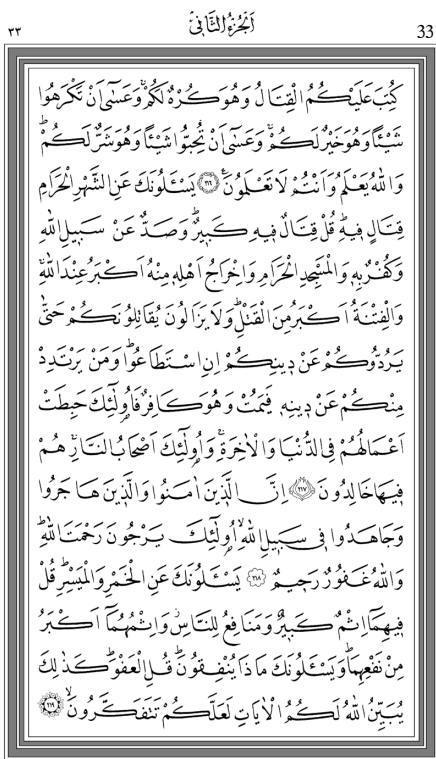 ٣٣ اَلْجُزْءُ الثَّانٖى 33
كُتِبَ عَلَيْكُمُ الْقِتَالُ وَهُوَ كُرْهٌ لَكُمْۚ وَعَسٰٓى اَنْ تَكْرَهُوا
شَيْـًٔا وَهُوَ خَيْرٌ لَكُمْۚ وَعَسٰٓى اَنْ تُحِبُّوا شَيْـًٔا وَهُوَ شَرٌّ لَكُمْۜ
وَاللّٰهُ يَعْلَمُ وَاَنْتُمْ لَا تَعْلَمُونَ۟ ﴿٢١٦﴾ يَسْـَٔلُونَكَ عَنِ الشَّهْرِ الْحَرَامِ
قِتَالٍ فٖيهِۜ قُلْ قِتَالٌ فٖيهِ كَبٖيرٌۜ وَصَدٌّ عَنْ سَبٖيلِ اللّٰهِ
وَكُفْرٌ بِهٖ وَالْمَسْجِدِ الْحَرَامِ وَاِخْرَاجُ اَهْلِهٖ مِنْهُ اَكْبَرُ عِنْدَ اللّٰهِۚ
وَالْفِتْنَةُ اَكْبَرُ مِنَ الْقَتْلِۜ وَلَا يَزَالُونَ يُقَاتِلُونَكُمْ حَتّٰى
يَرُدُّوكُمْ عَنْ دٖينِكُمْ اِنِ اسْتَطَاعُواۜ وَمَنْ يَرْتَدِدْ
مِنْكُمْ عَنْ دٖينِهٖ فَيَمُتْ وَهُوَ كَافِرٌ فَاُو۬لٰٓئِكَ حَبِطَتْ
اَعْمَالُهُمْ فِى الدُّنْيَا وَالْاٰخِرَةِۚ وَاُو۬لٰٓئِكَ اَصْحَابُ النَّارِۚ هُمْ
فٖيهَا خَالِدُونَ ﴿٢١٧﴾ اِنَّ الَّذٖينَ اٰمَنُوا وَالَّذٖينَ هَاجَرُوا
وَجَاهَدُوا فٖى سَبٖيلِ اللّٰهِۙ اُو۬لٰٓئِكَ يَرْجُونَ رَحْمَتَ اللّٰهِۜ
وَاللّٰهُ غَفُورٌ رَحٖيمٌ ﴿٢١٨﴾ يَسْـَٔلُونَكَ عَنِ الْخَمْرِ وَالْمَيْسِرِۜ قُلْ
فٖيهِمَٓا اِثْمٌ كَبٖيرٌ وَمَنَافِعُ لِلنَّاسِۘ وَاِثْمُهُمَٓا اَكْبَرُ
مِنْ نَفْعِهِمَاۜ وَيَسْـَٔلُونَكَ مَاذَا يُنْفِقُونَۜ قُلِ الْعَفْوَۜ كَذٰلِكَ
يُبَيِّنُ اللّٰهُ لَكُمُ الْاٰيَاتِ لَعَلَّكُمْ تَتَفَكَّرُونَۙ ﴿٢١٩﴾